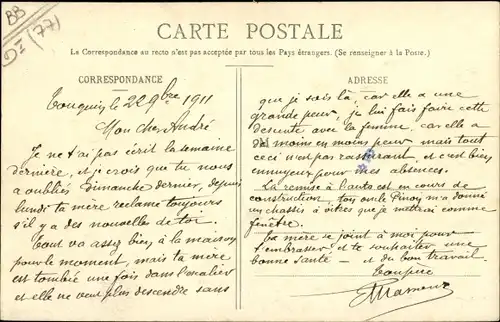 BB
DI (77)
CARTE POSTALE
La Correspondance au recto n'est pas acceptée par tous les Pays étrangers. (Se renseigner à la Poste.)
CORRESPONDANCE
le 22 9bre 1911
Mon cher André
Je ne t'ai pas écrit la semaine
dernière, et je crois que tu nous
a oubliés Dimanche dernier, depuis
lundi ta mère réclame toujours
s'il y a des nouvelles de toi.
Tout va assez bien, à la maison
pour le moment, mais ta mère
est tombée une fois dans l'escalier
et elle ne veut plus descendre sans
ADRESSE
que je sois là, car elle a une
grande peur, je lui fais faire cette
descente avec la femme, car elle a
de moins en moins peur mais tout
ceci n'est pas rassurant, et c'est bien
ennuyeux pour mes absences.
La remise à l'auto est en cours de
construction, ton oncle m'a donné
un chassis à vitres que je mettrai comme
fenêtre.
Ta mère se joint à moi pour
t'embrasser et te souhaiter une
bonne santé — et du bon travail.
Ton père